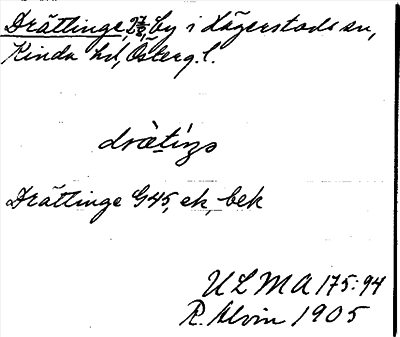 Drättinge, 2 7/8, by i Tidersrums sn,
Kinda hd, Österg. l.
drätiŋə
Drättinge G45, ek, bek
ULMA 175:94
R. Alvin 1905